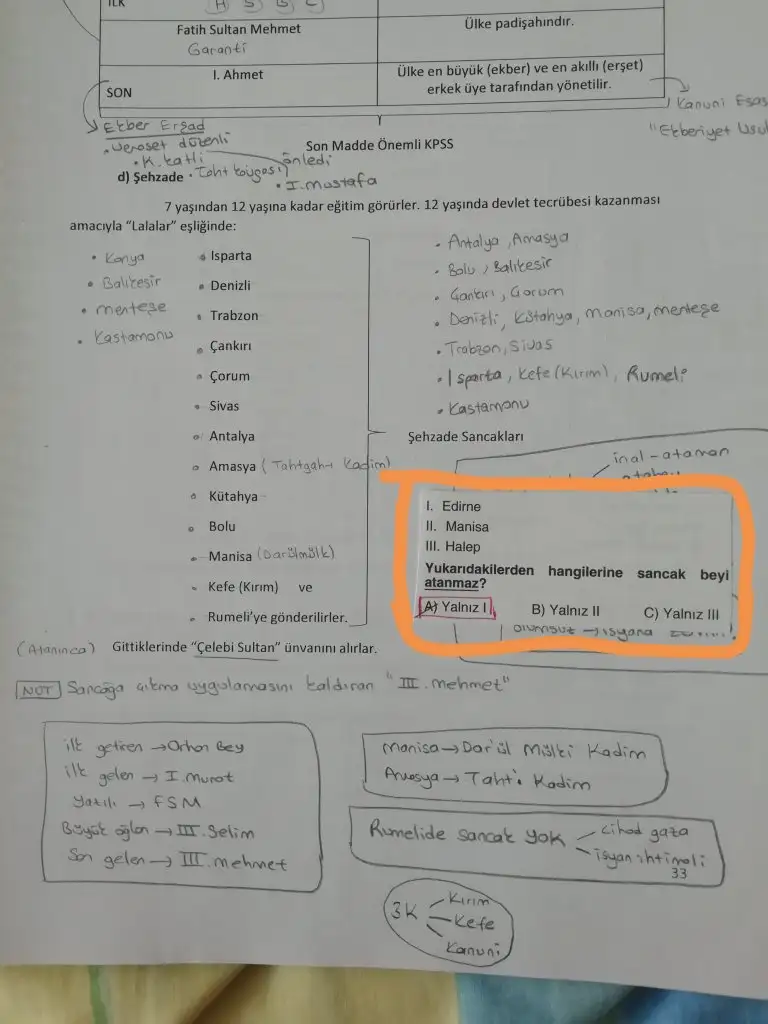 İLK
H S B C
Fatih Sultan Mehmet
Garanti
Ülke padişahındır.
SON
I. Ahmet
Ülke en büyük (ekber) ve en akıllı (erşet)
erkek üye tarafından yönetilir.
Kanuni Esas
"Ekberiyet Usul
Ekber Erşad
• veraset düzenli
• K. katli
önledi
Son Madde Önemli KPSS
d) Şehzade
• Taht kavgası
• I. mustafa
7 yaşından 12 yaşına kadar eğitim görürler. 12 yaşında devlet tecrübesi kazanması
amacıyla "Lalalar" eşliğinde:
• Konya
• Balıkesir
• menteşe
• Kastamonu
• Isparta
• Denizli
• Trabzon
• Çankırı
• Çorum
• Sivas
• Antalya
• Amasya (Tahtgah-ı Kadim)
• Kütahya
• Bolu
• Manisa (Darülmülk)
• Kefe (Kırım) ve
• Rumeli'ye gönderilirler.
• Antalya, Amasya
• Bolu, Balıkesir
• Çankırı, Çorum
• Denizli, Kütahya, manisa, menteşe
• Trabzon, Sivas
• Isparta, Kefe (Kırım), Rumeli
• Kastamonu
Şehzade Sancakları
inal - ataman
I. Edirne
II. Manisa
III. Halep
Yukarıdakilerden hangilerine sancak beyi
atanmaz?
A) Yalnız I B) Yalnız II C) Yalnız III
olumsuz → isyana
(Atanınca) Gittiklerinde "Çelebi Sultan" ünvanını alırlar.
NOT Sancağa çıkma uygulamasını kaldıran "III. mehmet"
ilk getiren → Orhan Bey
ilk gelen → I. Murat
Yatılı → FSM
Büyük oğlan → III. Selim
Son gelen → III. mehmet
Manisa → Dar'ül Mülki Kadim
Amasya → Taht'ı Kadim
Rumelide sancak yok
cihad gaza
isyan ihtimali
33
3K
Kırım
Kefe
Kanuni